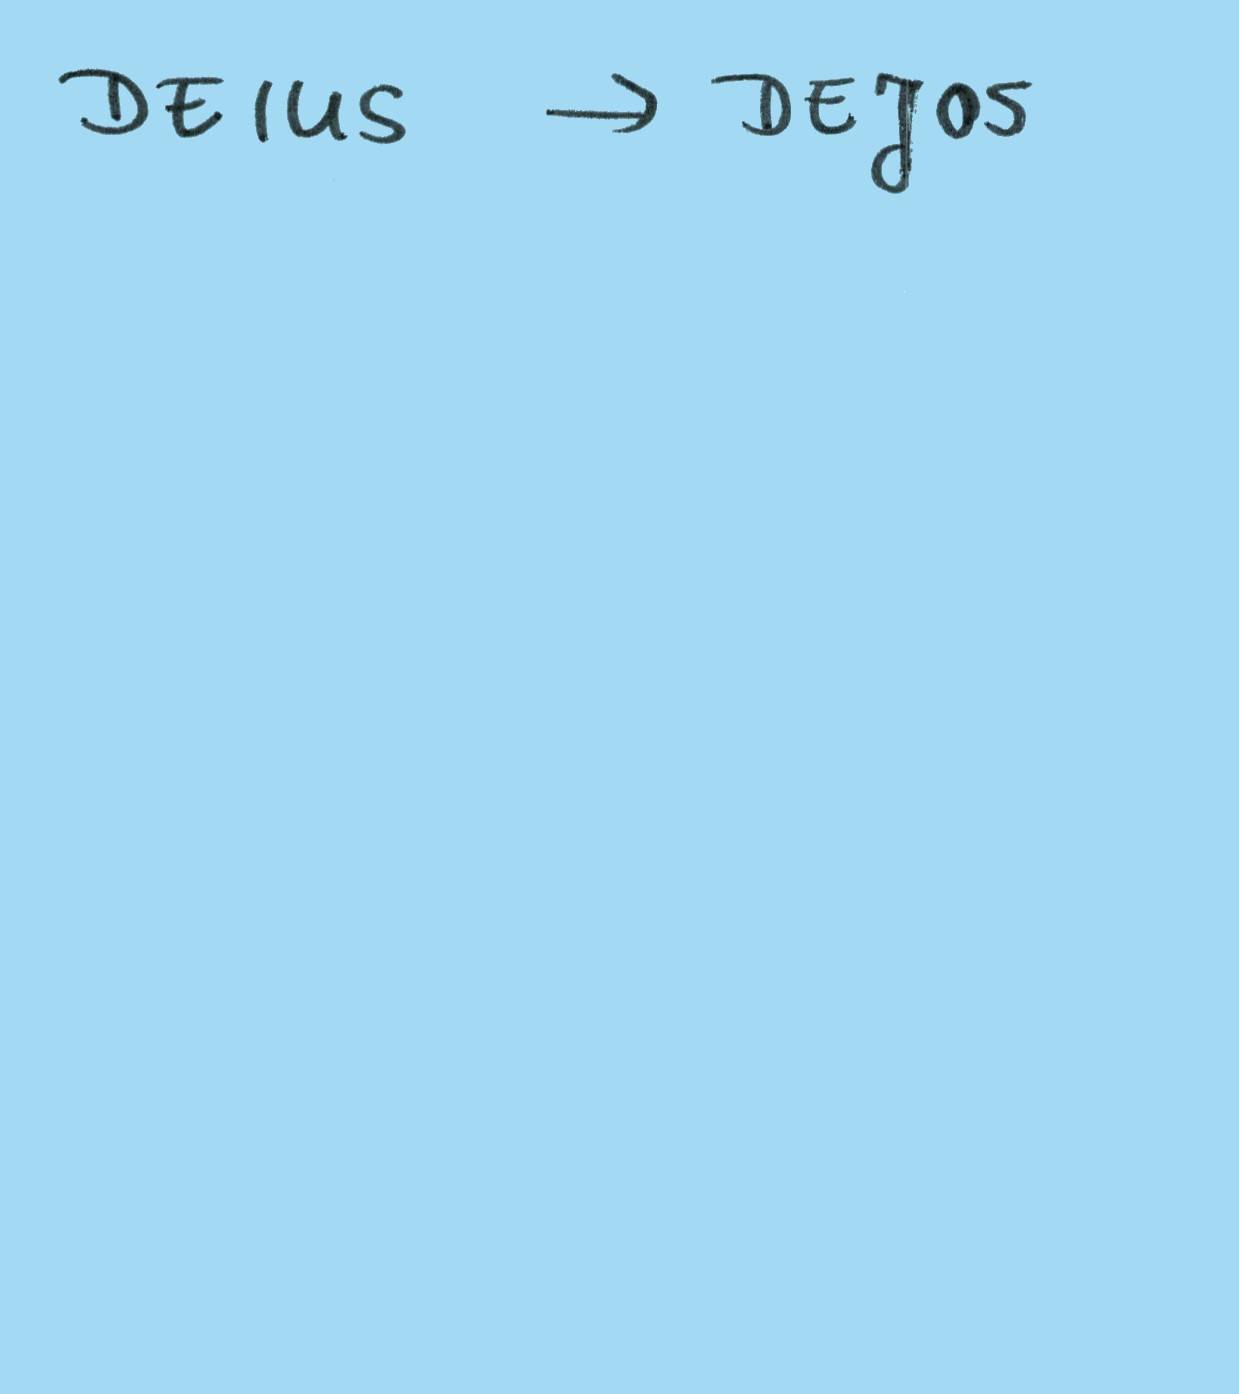 DEIUS → DEJOS